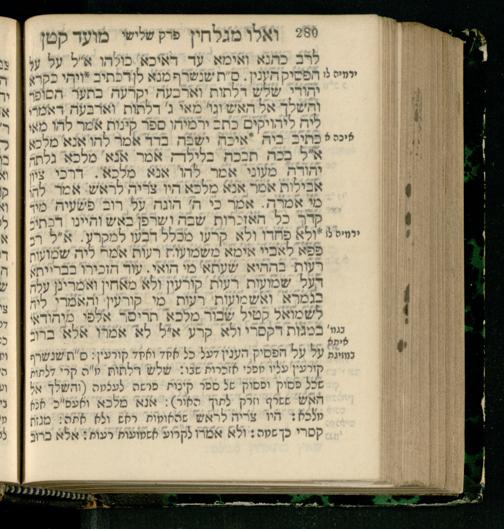 280 ואלו מגלחין פרק שלישי מועד קטן
לרב כהנא ואימא עד דאיכא כולהו א"ל על על
הפסיק הענין. ס"ת שנשרף מנא לן דכתיב *ויהי כקרא
ירמיה לו
יהודי שלש דלתות וארבעה יקרעה בתער הסופר
והשלך אל האש וגו' מאי ג' דלתות וארבעה דאמרו
ליה ליהויקים כתב ירמיהו ספר קינות אמר להו מאי
כתיב ביה *איכה ישבה בדד אמר להו אנא מלכא
איכה א
א"ל בכה תבכה בלילה אמר אנא מלכא גלתה
יהודה מעוני אמר להו אנא מלכא. דרכי ציון
אבילות אמר אנא מלכא היו צריה לראש אמר להו
מי אמרה. אמר כי ה' הוגה על רוב פשעיה מיד
קדר כל האזכרות שבה ושרפן באש והיינו דכתיב
*ולא פחדו ולא קרעו מכלל דבעו למקרע. א"ל רב
ירמיה לו
פפא לאביי אימא משמועות רעות אמר ליה שמועות
רעות בההיא שעתא מי הואי. עוד הזכירו בברייתא
העל שמועות רעות קורעין ולא מאחין ואמרינן עלה
בגמרא ואשמועות רעות מי קורעין והאמרי ליה
לשמואל קטיל שבור מלכא תריסר אלפי מיהודאי
במגזת דקסרי ולא קרע א"ל לא אמרו אלא ברוב
על על הפסיק הענין דעל כל אחד ואחד קורעין: ס"ת שנשרף
קורעין עליו מפני אזכרות שבו: שלש דלתות
שכל פסוק ופסוק של ספר קינות פרשה לעצמה (והשלך אל
האש ששרף וזרק לתוך האור): אנא מלכא ואעפ"כ אנא
מלכא: היו צריה לראש שהאומות ראש ולא אתה:
קסרי כך שמה: ולא אמרו לקרוע אשמועות רעות: אלא ברוב